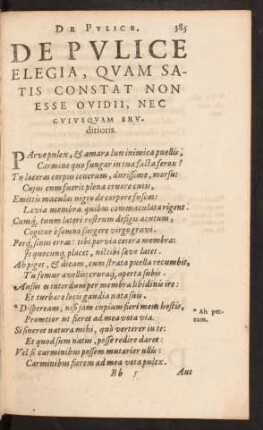 DE PVLICE. 385
DE PVLICE
ELEGIA, QVAM SA-
TIS CONSTAT NON
ESSE OVIDII, NEC
CVIVSQVAM ERV-
ditioris.
PArve pulex, & amara lues inimica puellis,
Carmine quo fungar in tua facta ferox?
Tu laceras corpus tenerum, durissime, morsu:
Cujus cum fuerit plena cruore cutis,
Emittis maculas nigro de corpore fuscas:
Levia membra quibus commaculata rigent.
Cumq́; tuum lateri rostrum defigis acutum,
Cogitur è somno surgere virgo gravi.
Perq́; sinus erras: tibi pervia cetera membra:
Is quocunq; placet, nil tibi sæve latet.
Ah piget, & dicam, cum strata puella recumbit,
Tu femur avellis: cruraq́; aperta subis.
Ausus es interdum per membra libidinis ire:
Et turbare locis gaudia nata suis.
* Dispeream, nisi jam cupiam fieri meus hostis,
Promtior ut fieret ad mea vota via.
* Ah per-
eam.
Si sineret natura mihi, quò verterer in te:
Et quod sum natus, posse redire daret:
Vel si carminibus possem mutarier ullis:
Carminibus fierem ad mea vota pulex.
Bb 5 Aut